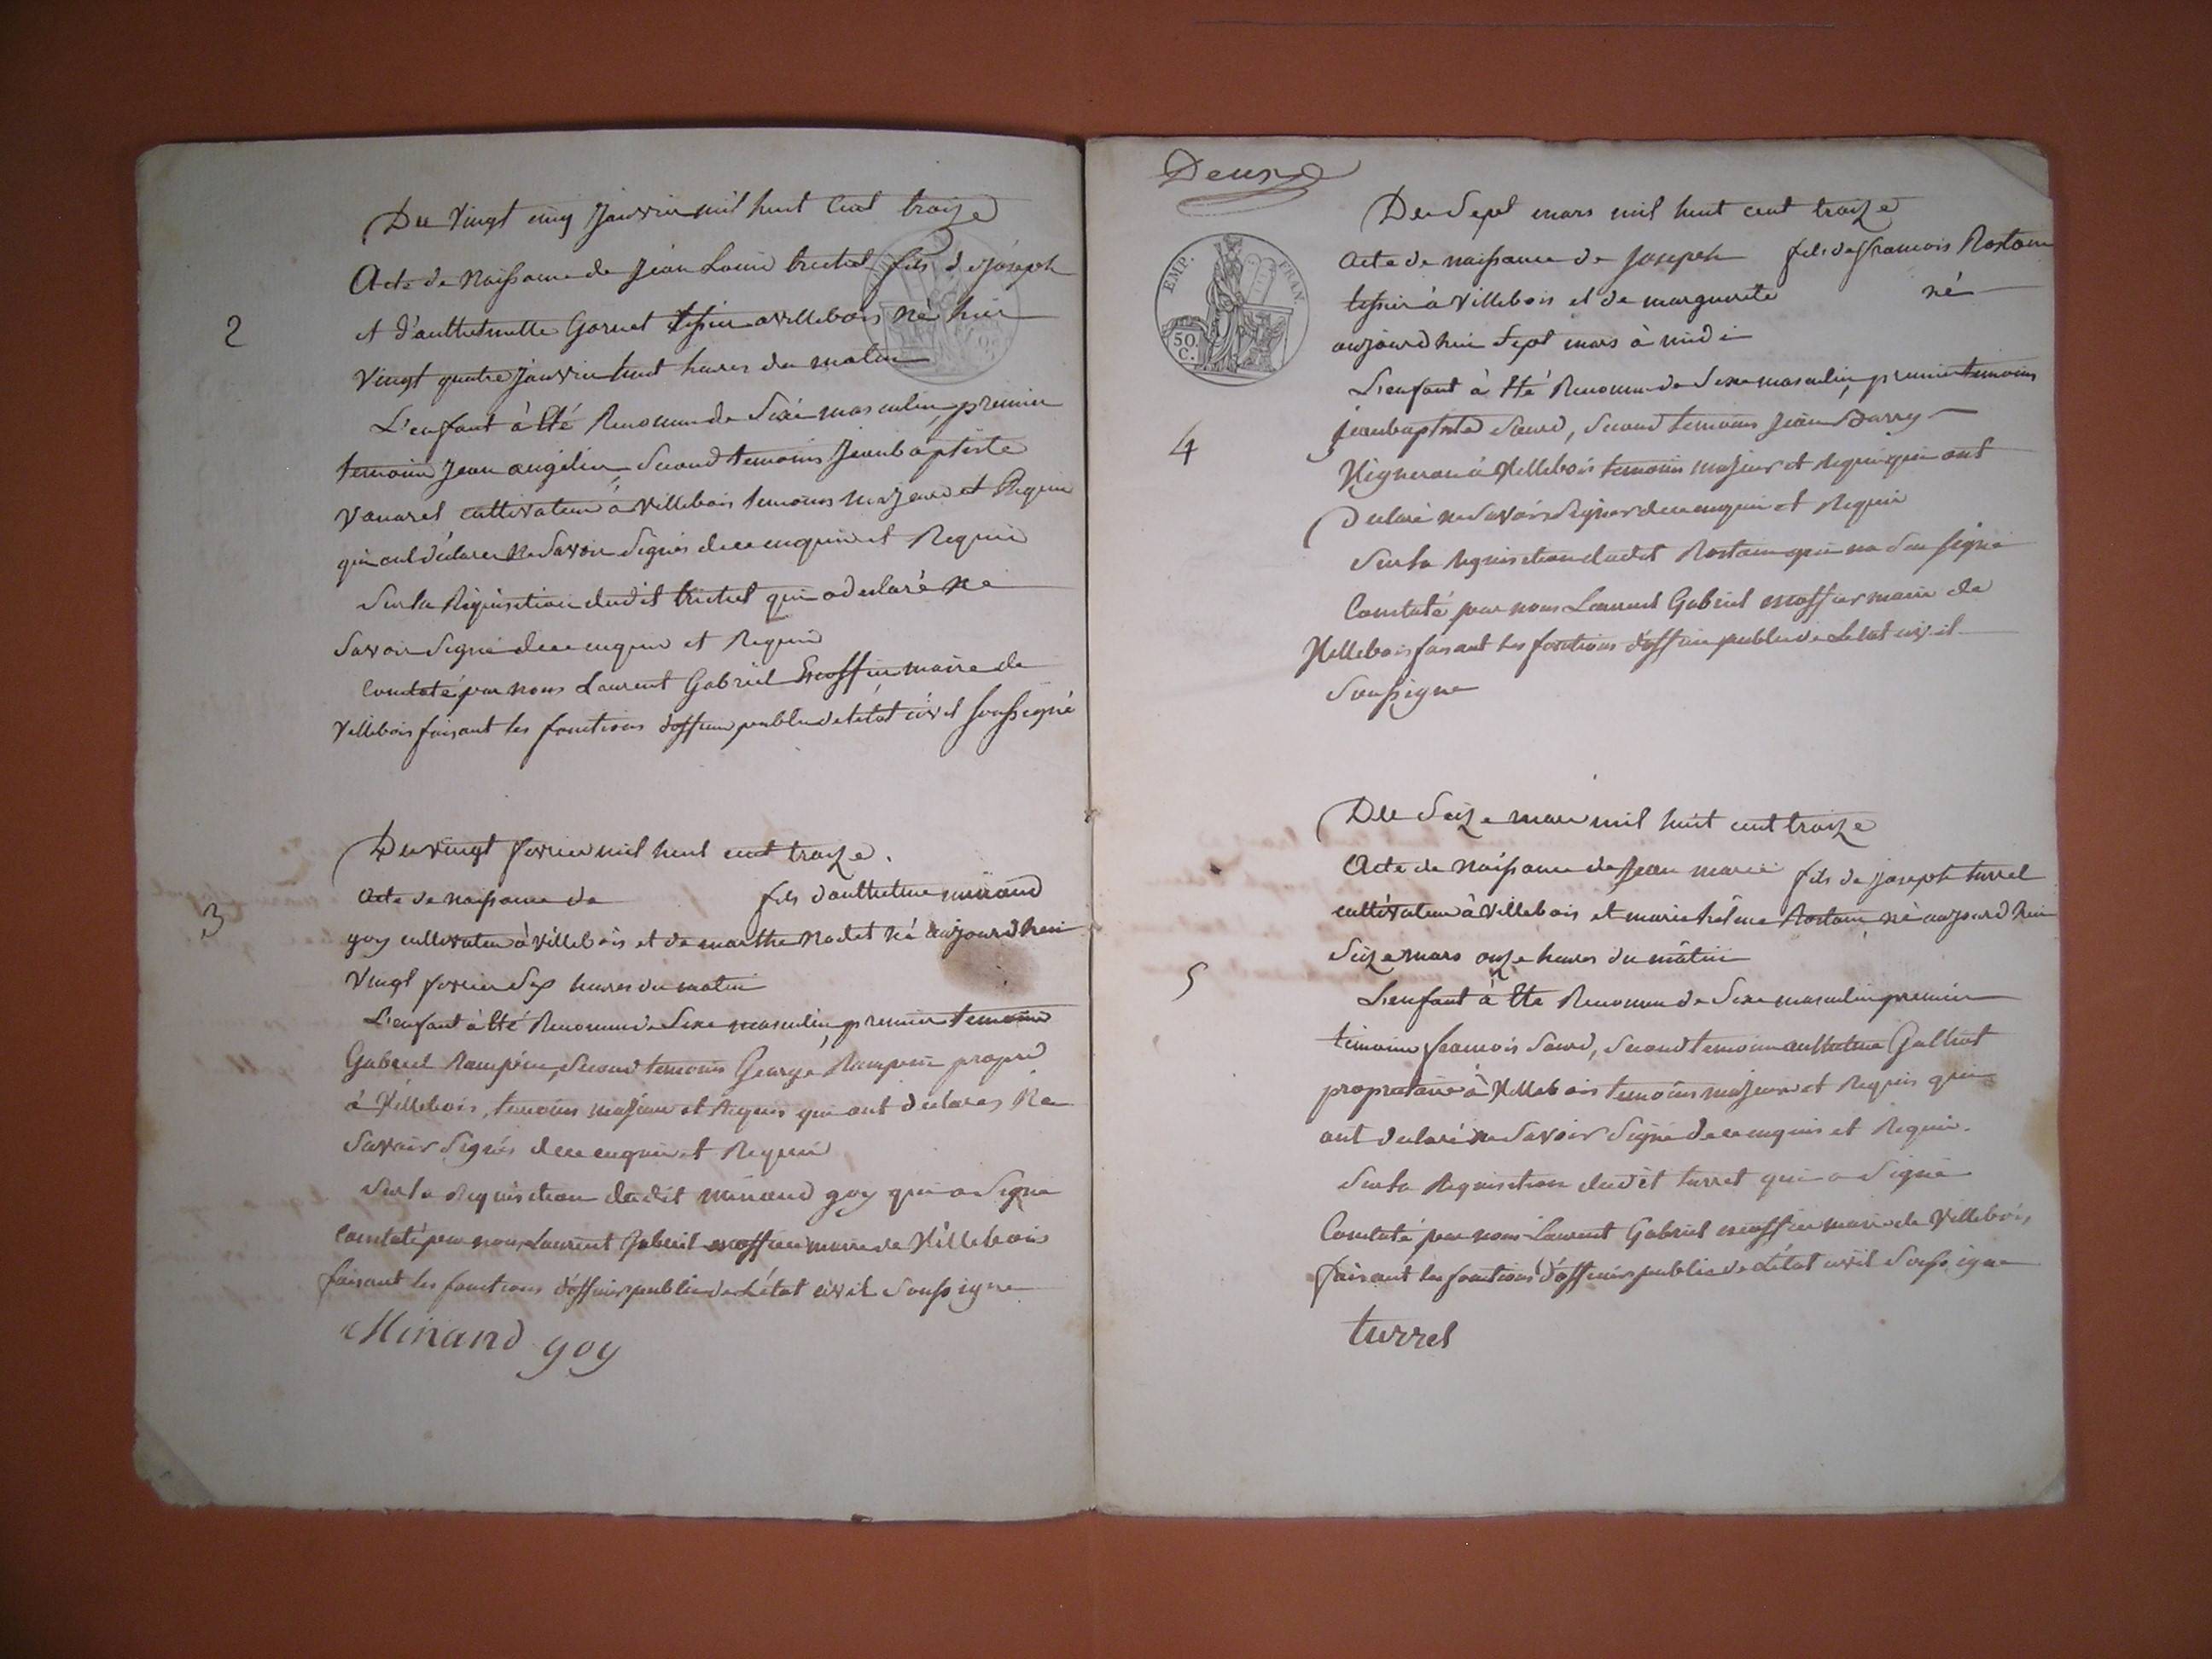 2
Du Vingt cinq Janvier mil huit Cent traize
Acte de Naissance de Jean Louis trichet fils de joseph
et d'anthelmette Gornet tissier a villebois né hier
Vingt quatre Janvier huit heures du matin
L'enfant à Eté Reconnu de Sexé masculin, premier
temoins Jean augelin, Second temoins Jeanbaptiste
Vanarel cultivateur à Villebois temoins majeurs et Requis
qui ont déclarer Ne Savoir Signés de ce enquis et Requis
Sur la Réquisition dudit trichet qui a déclaré ne
Savoir Signé de ce enquis et Requis
Constaté par nous Laurent Gabriel Escoffier maire de
Villebois faisant les fonctions d'officier public de l'état civil soussigné
3
Du vingt fevrier mil huit cent traize.
Acte de naissance de fils d'anthelme minand
goy cultivateur à Villebois et de marthe Nadet né aujourdhui
Vingt fevrier Six heures du matin
L'enfant à Eté Reconnu de Sexe masculin, premier temoins
Gabriel Rampin, Second temoins George Rampin propre
à Villebois, temoins majeurs et Requis qui ont declares Ne
Savoir Signés de ce enquis et Requis
Sur la Requisition dudit minand goy qui a Signé
Constaté par nous Laurent Gabriel escoffier maire de Villebois
faisant les fonctions d'officier public de L'état civil Soussigne
Minand goy
Deux
EMP. FRAN.
50 C.
4
Du Sept mars mil huit cent traize
Acte de naissance de Joseph fils de francois Rostain
tissier à Villebois et de marguerite né
aujourdhui Sept mars à midi
L'enfant à Eté Reconnu de Sexe masculin, premier temoins
jeanbaptiste Saurd, Second temoins Jean Barry
Vigneron à Villebois temoins majeurs et Requis qui ont
declaré ne Savoir Signer de ce enquis et Requis
Sur la Requisition dudit Rostain qui na Seu signé
Constaté par nous Laurent Gabriel escoffier maire de
Villebois faisant les fontions d'officier public de Letat civil
Soussigne
5
Du Seize mars mil huit cent traize
Acte de Naissance de Jean marie fils de joseph turrel
cultivateur à Villebois et marie hélene Rostain, né aujourdhui
Seize mars onze heures du mâtin
L'enfant à Eté Reconnu de Sexe masculin premier
temoins francois Saurd, Second temoins anthelme Galliot
propriétaire à Villebois temoins majeurs et Requis qui
ont declaré ne Savoir Signé de ce enquis et Requis.
Sur la Requisition dudit turrel qui a Signé
Constaté par nous Laurent Gabriel escoffier maire de Villebois,
faisant les fonctions d'officier public de L'état civil Soussigne
turrel